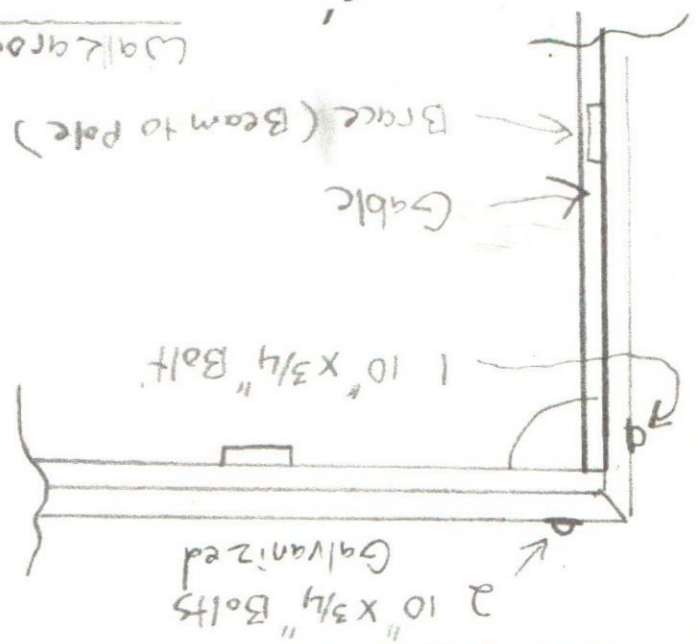 2 10" x 3/4" Bolts
Galvanized
1 10" x 3/4" Bolt
Gable
Brace (Beam to Pole)